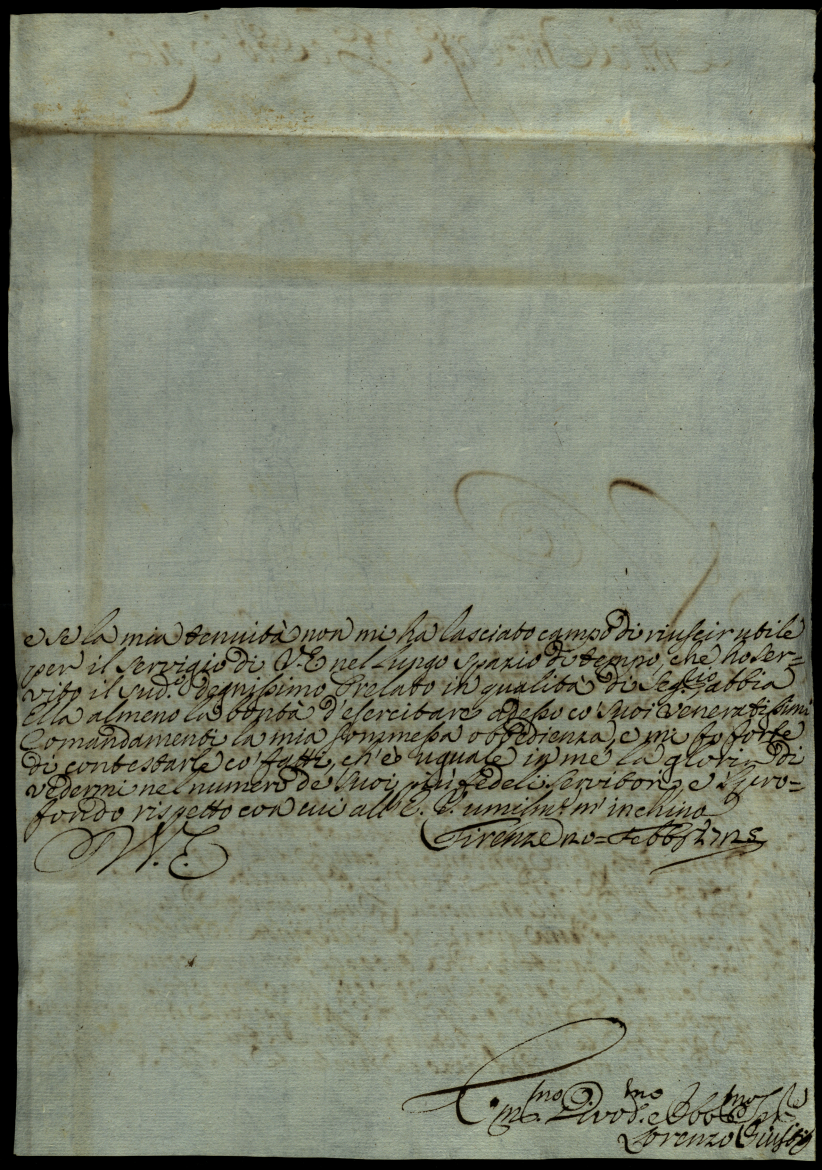 e se la mia tenuità non mi ha lasciato campo di riuscir utile
per il servigio di V.E. nel lungo spazio di tempo, che ho ser=
vito il sud.º degnissimo Prelato in qualità di Seg.rio abbia
Ella almeno la bontà d'esercitare adesso co' suoi veneratissimi
Comandamenti la mia sommessa obbedienza, e mi fo forte
di contestarle co' fatti, ch'è uguale in me la gloria di
vedermi nel numero de' suoi più fedeli servitori, e il pro=
fondo rispetto con cui all'E. V. umilm.te m'inchino
Firenze 20 = Febb.º 1728
V. E.
Um.mo Div.mo e Obb.mo Ser.e
Lorenzo Giusti